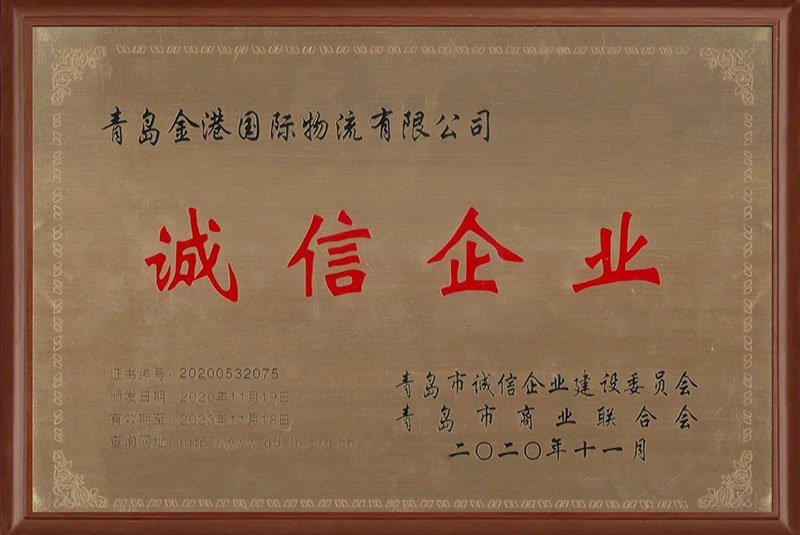 青岛金港国际物流有限公司
诚信企业
证书编号：20200532075
颁发日期：2020年11月19日
有效期至：2023年11月18日
查询网址：
青岛市诚信企业建设委员会
青岛市商业联合会
二〇二〇年十一月